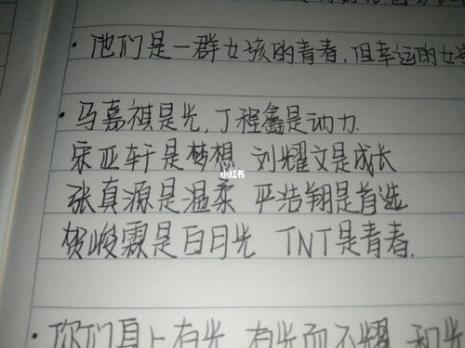 ·他们是一群女孩的青春,但幸运的女
·马嘉祺是光,丁程鑫是动力.
宋亚轩是梦想 刘耀文是成长
小红书
张真源是温柔 严浩翔是首选
贺峻霖是白月光 TNT是青春.
·你们身上有光 有光而不耀 和光